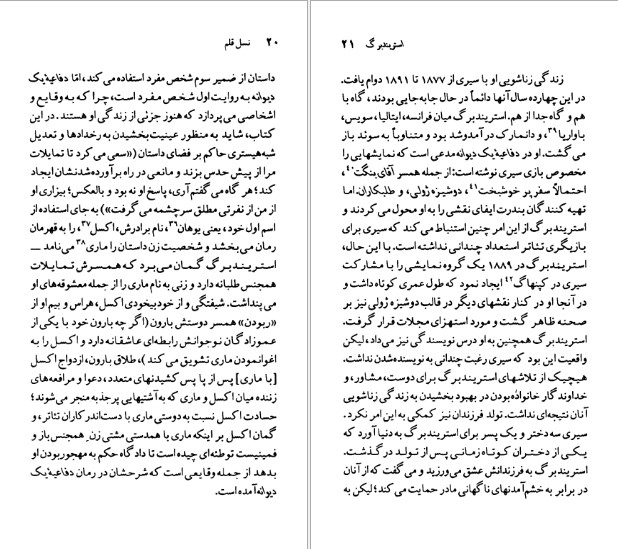 استریندبرگ ۲۱
زندگی زناشویی او با سیری از ۱۸۷۷ تا ۱۸۹۱ دوام یافت.
در این چهارده سال آنها دائماً در حال جابه‌جایی بودند، گاه با
هم و گاه جدا از هم. استریندبرگ میان فرانسه، ایتالیا، سویس،
باواریا۳۹، و دانمارک در آمدوشد بود و متناوباً به سوئد باز
می‌گشت. او در دفاعیهٔ یک دیوانه مدعی است که نمایشهایی را
مخصوص بازی سیری نوشته است: از جمله همسر آقای بنگت۴۰،
احتمالاً سفر پر خوشبخت۴۱، دوشیزه ژولی، و طلبکاران. اما
تهیه کنندگان بندرت ایفای نقشی را به او محول می‌کردند و
استریندبرگ از این امر چنین استنباط می‌کند که سیری برای
بازیگری تئاتر استعداد چندانی نداشته است. با این حال،
استریندبرگ در ۱۸۸۹ یک گروه نمایشی را با مشارکت
سیری در کپنهاگ۴۲ ایجاد نمود که طول عمری کوتاه داشت و
در آنجا او در کنار نقشهای دیگر در قالب دوشیزه ژولی نیز بر
صحنه ظاهر گشت و مورد استهزای مجلات قرار گرفت.
استریندبرگ همچنین به او درس نویسندگی نیز می‌داد، لیکن
واقعیت این بود که سیری رغبت چندانی به نویسنده‌شدن نداشت.
هیچیک از تلاشهای استریندبرگ برای دوست، مشاور، و
خداوندگار خانواده بودن در بهبود بخشیدن به زندگی زناشویی
آنان نتیجه‌ای نداشت. تولد فرزندان نیز کمکی به این امر نکرد.
سیری سه دختر و یک پسر برای استریندبرگ به دنیا آورد که
یکی از دختران کوتاه زمانی پس از تولد درگذشت.
استریندبرگ به فرزندانش عشق می‌ورزید و می‌گفت که از آنان
در برابر به خشم‌آمدنهای ناگهانی مادر حمایت می‌کند؛ لیکن به
۲۰ نسل قلم
داستان از ضمیر سوم شخص مفرد استفاده می‌کند، امّا دفاعیهٔ یک
دیوانه به روایت اول شخص مفرد است، چرا که به وقایع و
اشخاصی می‌پردازد که هنوز جزئی از زندگی او هستند. در این
کتاب، شاید به منظور عینیت بخشیدن به رخدادها و تعدیل
شبه‌هیستری حاکم بر فضای داستان («سعی می‌کرد تا تمایلات
مرا از پیش حدس بزند و مانعی در راه برآورده شدنشان ایجاد
کند؛ هر گاه می‌گفتم آری، پاسخ او نه بود و بالعکس؛ بیزاری او
از من از نفرتی مطلق سرچشمه می‌گرفت») به جای استفاده از
اسم اول خود، یعنی یوهان۳۶، نام برادرش، اکسل۳۷، را به قهرمان
رمان می‌بخشد و شخصیت زن داستان را ماری۳۸ می‌نامد —
استریندبرگ گمان می‌برد که همسرش تمایلات
همجنس طلبانه دارد و زنی به نام ماری را از جمله معشوقه‌های او
می‌پنداشت. شیفتگی و از خودبیخودی اکسل، هراس و بیم او از
«ربودن» همسر دوستش بارون (اگر چه بارون خود با یکی از
عموزادگان نوجوانش رابطه‌ای عاشقانه دارد و اکسل را به
اغوانمودن ماری تشویق می کند)، طلاق بارون، ازدواج اکسل
[با ماری] پس از پا پس کشیدنهای متعدد، دعوا و مرافعه‌های
زننده میان اکسل و ماری که به آشتیهایی پرجذبه منجر می‌شوند؛
حسادت اکسل نسبت به دوستی ماری با دست‌اندرکاران تئاتر، و
گمان اکسل بر اینکه ماری با همدستی مشتی زن همجنس باز و
فمینیست توطئه‌ای چیده است تا دادگاه حکم به مهجور بودن او
بدهد از جمله وقایعی است که شرحشان در رمان دفاعیهٔ یک
دیوانه آمده است.